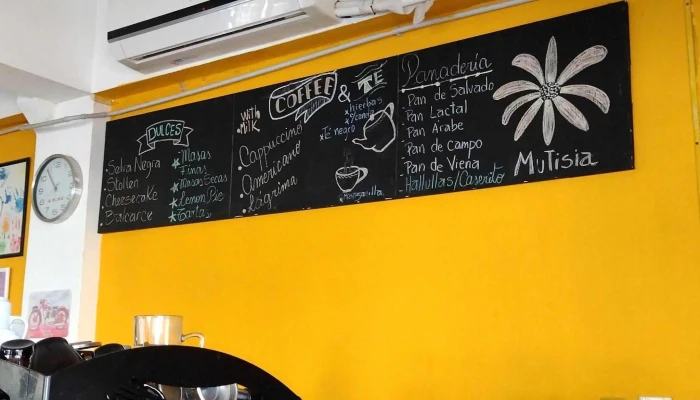 DULCES
Selva Negra
Stollen
Cheesecake
Balcarce
Masas
Finas
Masas Secas
Lemon Pie
Tartas
With
Milk
COFFEE
& TE
Cappuccino
Americano
Lagrima
hierbas
Té negro
Panadería
Pan de Salvado
Pan Lactal
Pan Arabe
Pan de campo
Pan de Viena
Hallullas/Caserito
Mutisia